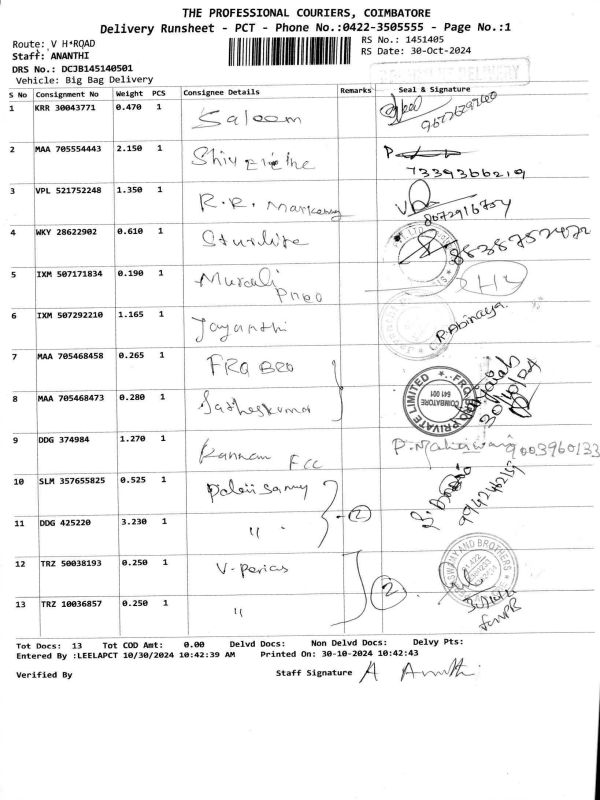 THE PROFESSIONAL COURIERS, COIMBATORE
Delivery Runsheet - PCT - Phone No.:0422-3505555 - Page No.:1
Route: V H*ROAD RS No.: 1451405
Staff: ANANTHI RS Date: 30-Oct-2024
DRS No.: DCJB145140501
Vehicle: Big Bag Delivery
S No Consignment No Weight PCS Consignee Details Remarks Seal & Signature
1 KRR 30043771 0.470 1 Saleem
2 MAA 705554443 2.150 1 7339366219
3 VPL 521752248 1.350 1 R.R. Marketing 8072916704
4 WKY 28622902 0.610 1
5 IXM 507171834 0.190 1 Murali
6 IXM 507292210 1.165 1 Jayanthi R.Abinaya
7 MAA 705468458 0.265 1 FRQ BRO
8 MAA 705468473 0.280 1 Satheskumar
PRIVATE LIMITED COIMBATORE 641 001
9 DDG 374984 1.270 1 Kannan FCC 9003960133
10 SLM 357655825 0.525 1 Palanisamy
2
11 DDG 425220 3.230 1 "
12 TRZ 50038193 0.250 1 V-Perias
AND BROTHERS
2
13 TRZ 10036857 0.250 1 "
Tot Docs: 13 Tot COD Amt: 0.00 Delvd Docs: Non Delvd Docs: Delvy Pts:
Entered By :LEELAPCT 10/30/2024 10:42:39 AM Printed On: 30-10-2024 10:42:43
Verified By Staff Signature